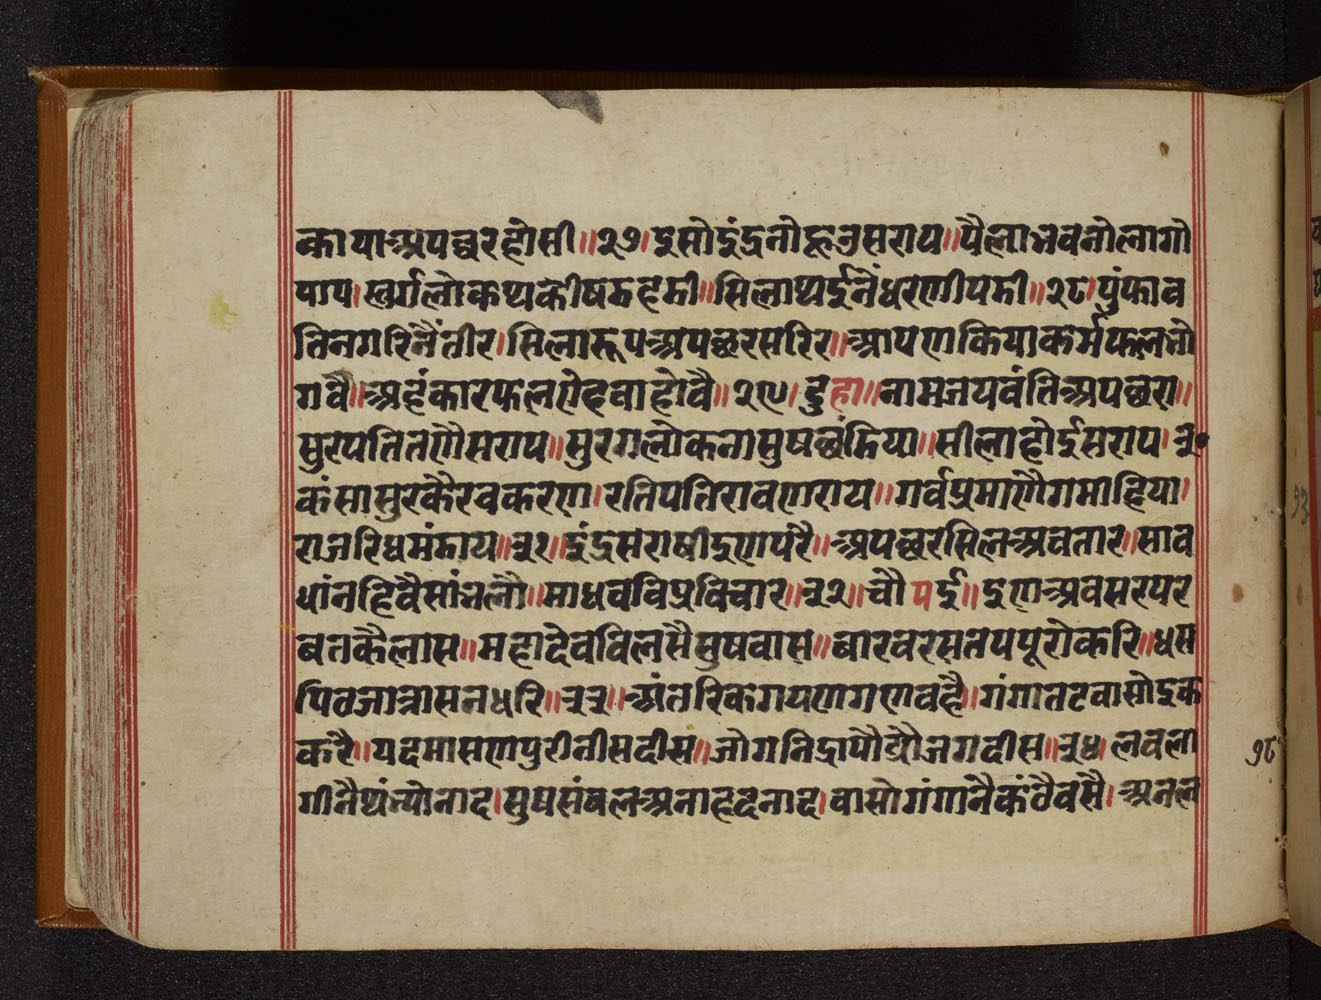 काया अपछरहोसी॥२७॥इसोइंद्रनोहूउसराप॥पैलाभवनोलागो
पाप।स्वर्गलोकथकीषडहडी॥सिलाथईनैंधरणीपडी॥२८॥पुंफाव
तिनगरिनैंतीर।सिलारूपअपछरसरिर॥आपणाकियाकर्मफलभो
गवै॥अहंकारफलएहवाहोवै॥२९॥दुहा॥नामजयवंतिअपछरा॥
सुरपतितणौसराप॥सुरगलोकनासुषछंडिया॥सीलाहोईसराप।३०
कंसासुरकैरवकरण।रतिपतिरावणराय॥गर्वप्रमाणैगमाहिया।
राजरिधमंडाय॥३१॥इंद्रसराषीइणपरै॥अपछरसिलअवतार॥साव
धांनहिवैसांभलौ॥माधवविप्रविचार॥३२॥चौपई॥इणअवसरपर
बतकैलास॥महादेवविलसैसुषवास॥बारवरसतपपूरोकरि॥धस
पिवजात्रासनधरि॥३३॥अंतरिकगयणगणवहै॥गंगातटवासोइक
करै॥षदमासणपुरीनीसदीस॥जोगनिद्रापौढ्यौजगदीस॥३४॥लवला
गीनैथंभ्योनाद।सुषसंबलअनाहदनाद।वासोगंगानैकंठैवसै।अनल
१८